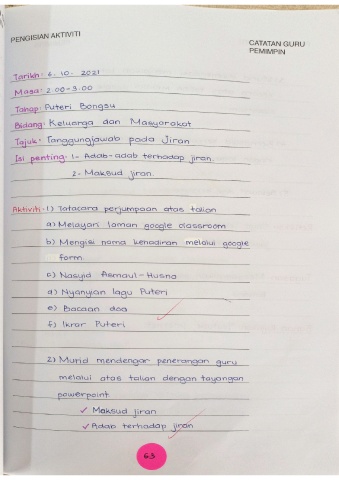 PENGISIAN AKTIVITI
CATATAN GURU
PEMIMPIN
Tarikh: 6.10.2021
Masa: 2.00-3.00
Tahap: Puteri Bongsu
Bidang: Keluarga dan Masyarakat
Tajuk: Tanggungjawab pada Jiran
Isi penting: 1- Adab-adab terhadap jiran.
2- Maksud jiran.
Aktiviti: 1) Tatacara perjumpaan atas talian
a) Melayari laman google classroom
b) Mengisi nama kehadiran melalui google
form.
c) Nasyid Asmaul-Husna
d) Nyanyian lagu Puteri
e) Bacaan doa
f) Ikrar Puteri
2) Murid mendengar penerangan guru
melalui atas talian dengan tayangan
powerpoint
✓ Maksud jiran
✓ Adab terhadap jiran
63